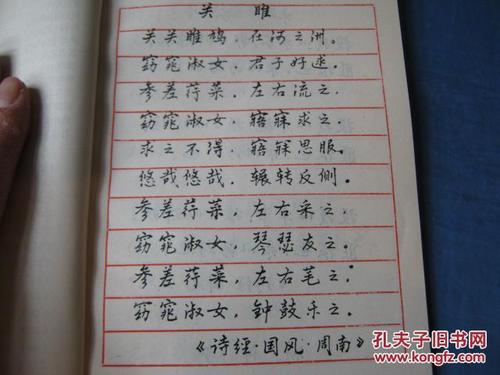 关雎
关关雎鸠，在河之洲。
窈窕淑女，君子好逑。
参差荇菜，左右流之。
窈窕淑女，寤寐求之。
求之不得，寤寐思服。
悠哉悠哉，辗转反侧。
参差荇菜，左右采之。
窈窕淑女，琴瑟友之。
参差荇菜，左右芼之。
窈窕淑女，钟鼓乐之。
《诗经·国风·周南》
孔夫子旧书网
www.kongfz.com